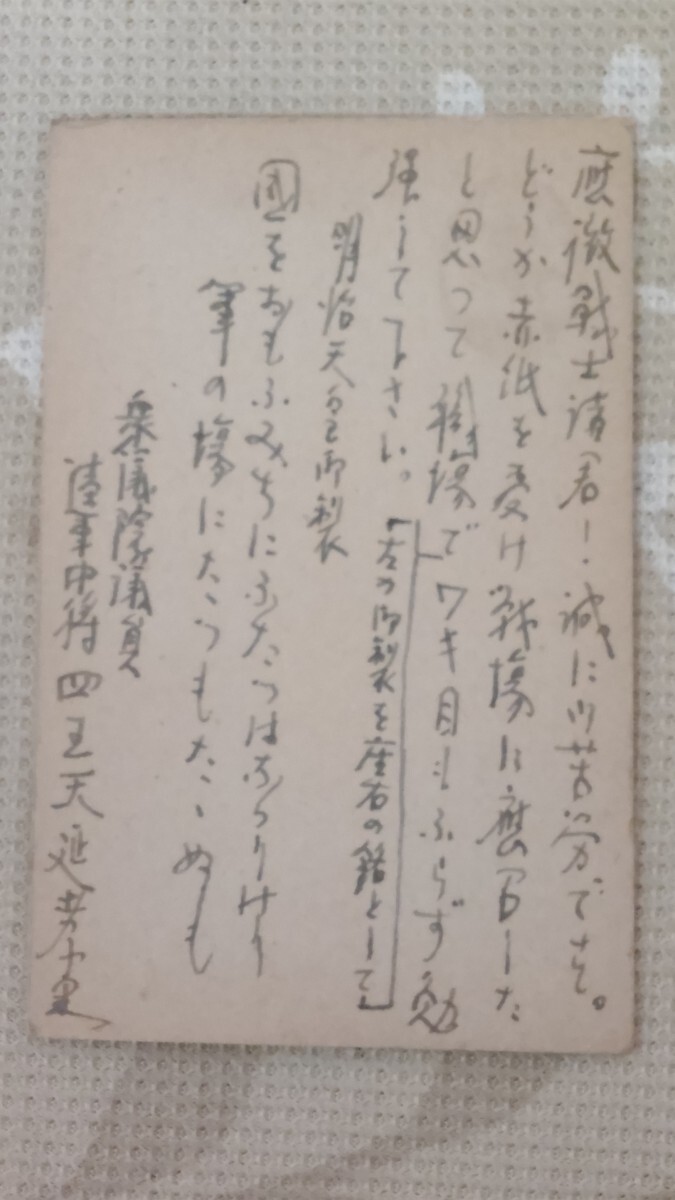 應徴戰士諸君！誠に御苦労でさ。
どうか赤紙を受け戰場に應召した
と思って職場でワキ目もふらず勉
强して下さい。
「左の御製を座右の銘として」
明治天皇御製
國をおもふみちにふたつはなかりけり
軍の場にたつもたゝぬも
衆議院議員
陸軍中将 四王天延孝